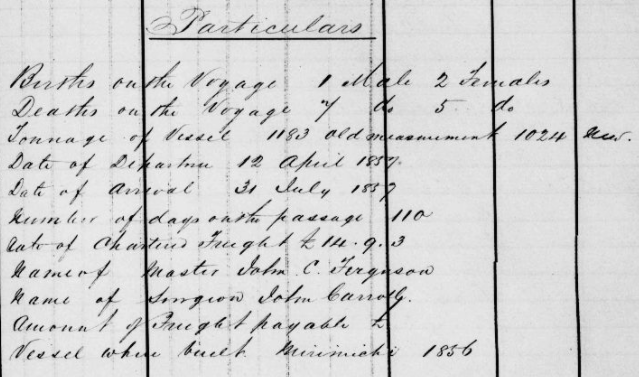 Particulars
Births on the Voyage 1 Male 2 Females
Deaths on the Voyage 7 do 5 do
Tonnage of Vessel 1183 old measurement 1024 new.
Date of Departure 12 April 1857.
Date of Arrival 31 July 1857
Number of days on the passage 110
Rate of Chartered Freight £14.9.3
Name of Master John C. Ferguson
Name of Surgeon John Carroll.
Amount of Freight payable £
Vessel where built Mirimichi 1856